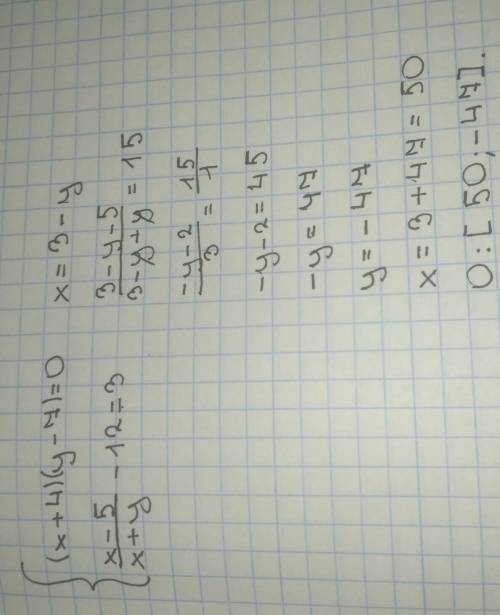 (x+4)(y-7)=0
x-5/x+y - 12=3
x=3-y
3-y-5/3-y+y = 15
-y-2/3 = 15/1
-y-2=45
-y=47
y=-47
x=3+47=50
O:[50;-47].